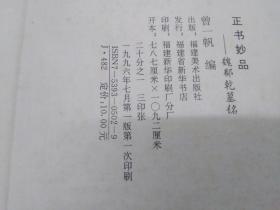 正书妙品
——魏鄯乾墓铭
曾一帆　编
出版：福建美术出版社
发行：福建省新华书店
印刷：福建新华印刷厂分厂
开本：七八七厘米×一〇九二厘米
二十分之一　三印张
一九九六年七月第一版第一次印刷
ISBN7-5393-0502-9
J·482　定价：10.00元